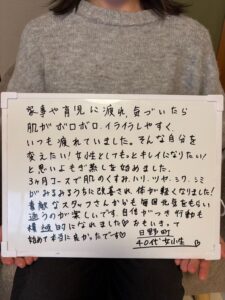 家事や育児に疲れ、気づいたら
肌がボロボロ、イライラしやすく、
いつも疲れていました。そんな自分を
変えたい!女性としてもっとキレイになりたい!
と思いよもぎ蒸しを始めました。
3ヶ月コースで肌のくすみ、ハリ、ツヤ、シワ、シミ
がみるみるうちに改善され、体が軽くなりました!
素敵なスタッフさんからも毎回元気をもらい
通うのが楽しいです。自信がつき行動も
積極的になれました♡おもいきって
始めて本当に良かったです♡
日野町
40代女性